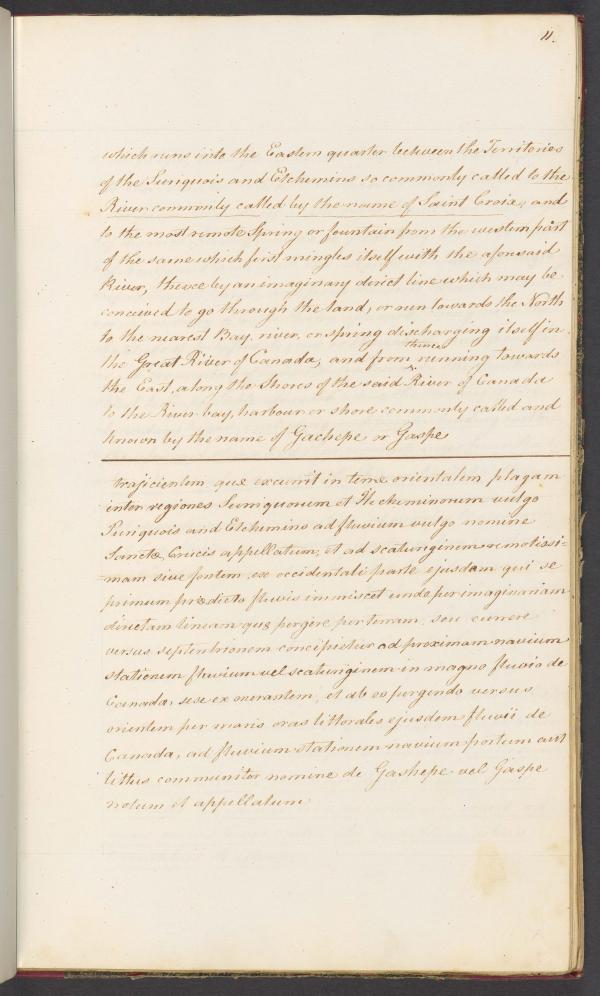 11.
which runs into the Eastern quarter between the Territories
of the Suriquois and Etchemins so commonly called to the
River commonly called by the name of Saint Croix; and
to the most remote Spring or fountain from the western part
of the same which first mingles itself with the aforesaid
River, thence by an imaginary direct line which may be
conceived to go through the land, or run towards the North
to the nearest Bay, river, or spring discharging itself in
the Great River of Canada, and from thence running towards
the East, along the Shores of the said River of Canada
to the River bay, harbour or shore commonly called and
known by the name of Gachepe or Gaspe
trajicientem que excurrit in terræ orientalem plagam
inter regiones Suriquorum et Etcheminorum vulgo
Suriquois and Etchemins ad fluvium vulgo nomine
Sanctæ Crucis appellatum, et ad scaturiginem remotissi-
=mam sive fontem ex occidentali parte ejusdem qui se
primum prædicto fluvio immiscet unde per imaginariam
directam lineam quæ pergere per terram seu currere
versus septentrionem concipietur ad proximam navium
stationem fluvium vel scaturiginem in magno fluvio de
Canada, sese exonerantem, et ab eo pergendo versus
orientem per maris oras littorales ejusdem fluvii de
Canada, ad fluvium stationem navium portum aut
littus communiter nomine de Gashepe vel Gaspe
notum et appellatum